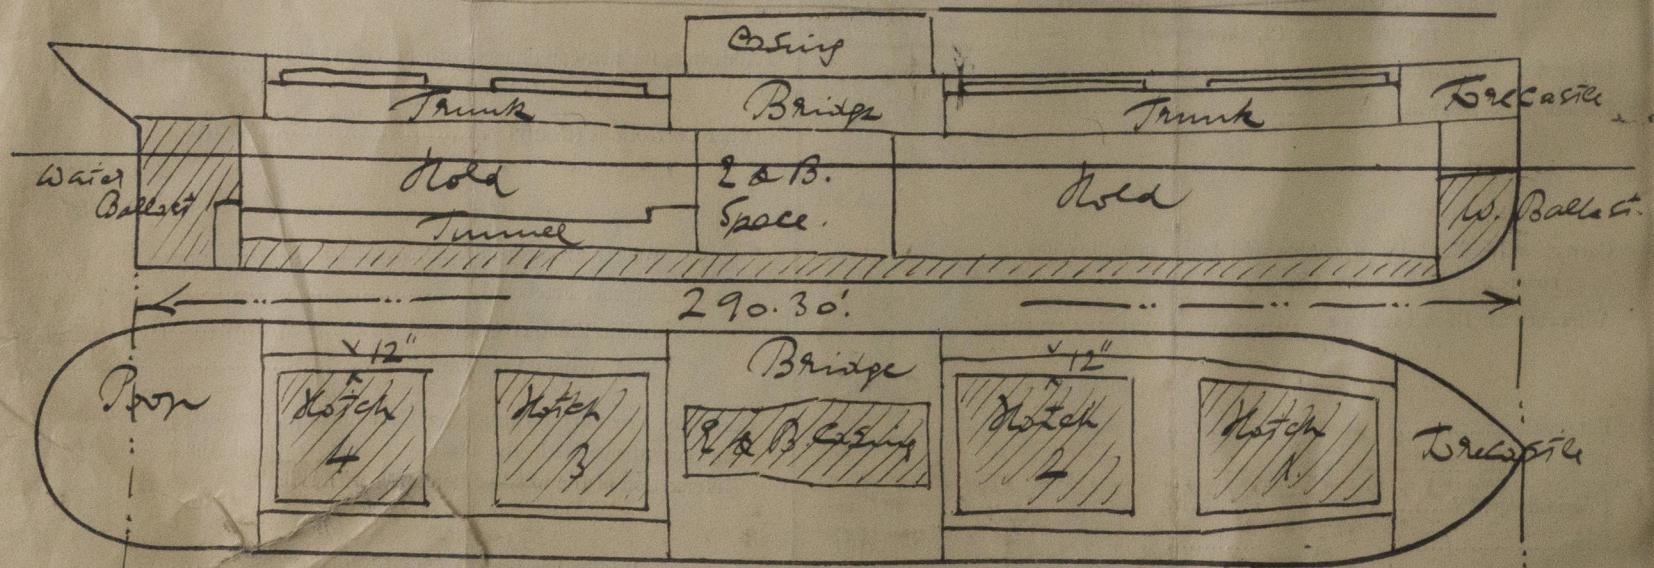 Casing
Trunk
Bridge
Trunk
Forecastle
Water
Ballast
Hold
E & B.
Space.
Hold
W. Ballast.
Tunnel
290.30'.
Poop
12"
Hatch
4
Hatch
3
Bridge
E & B Casing
12"
Hatch
2
Hatch
1.
Forecastle